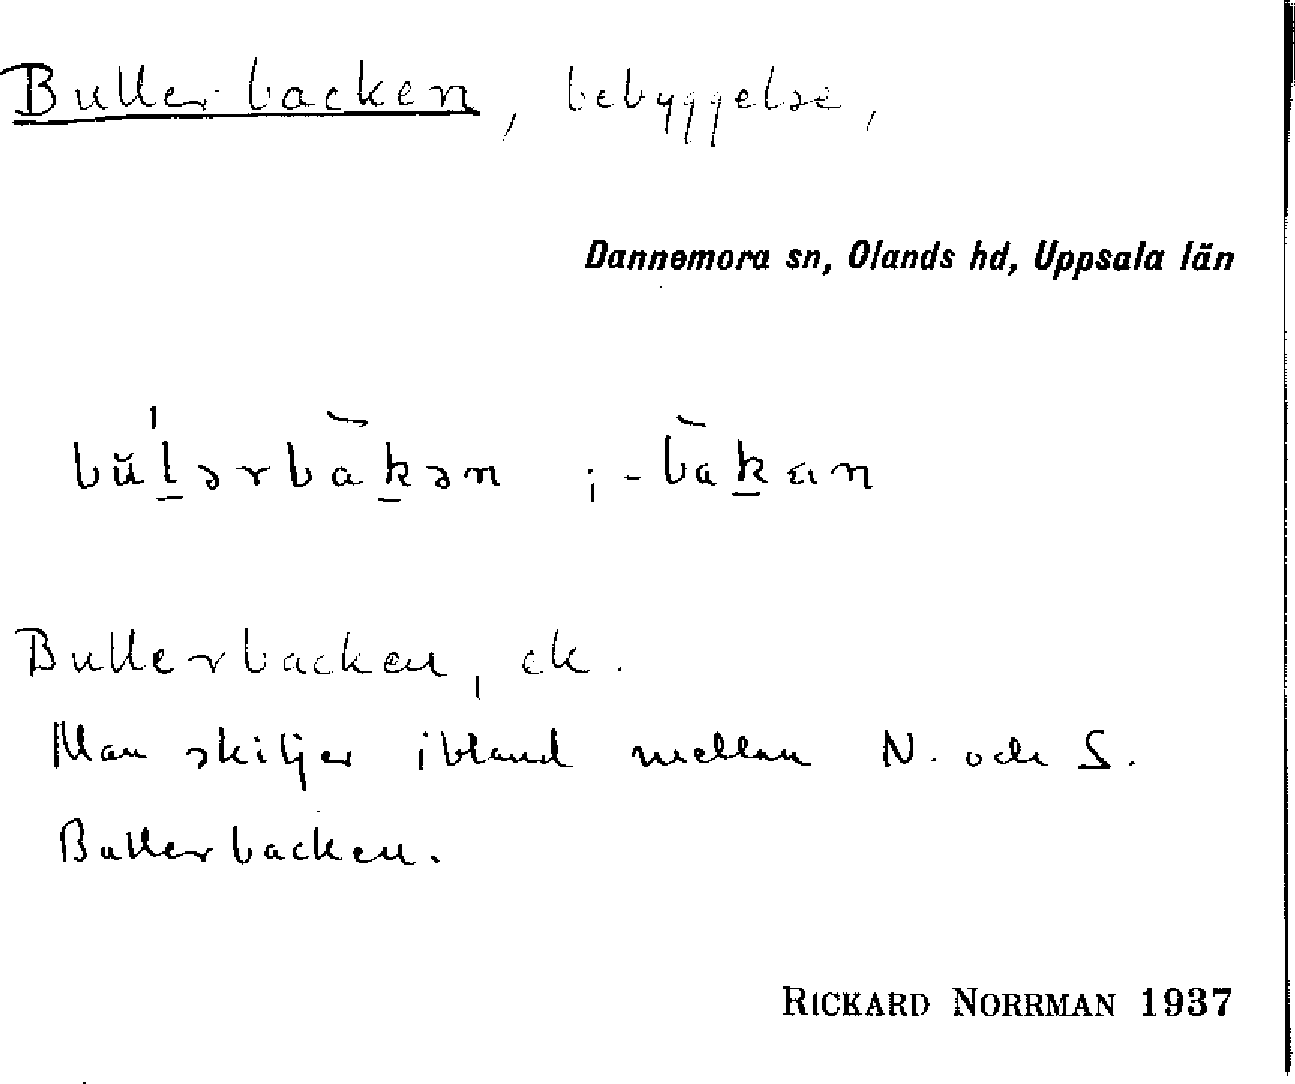 Bullerbacken, bebyggelse,
Dannemora sn, Olands hd, Uppsala län
bŭ́l̠ərbàk̠ən ; -bàk̠æn
Bullerbacken, ek.
Man skiljer ibland mellan N. och S.
Bullerbacken.
RICKARD NORRMAN 1937